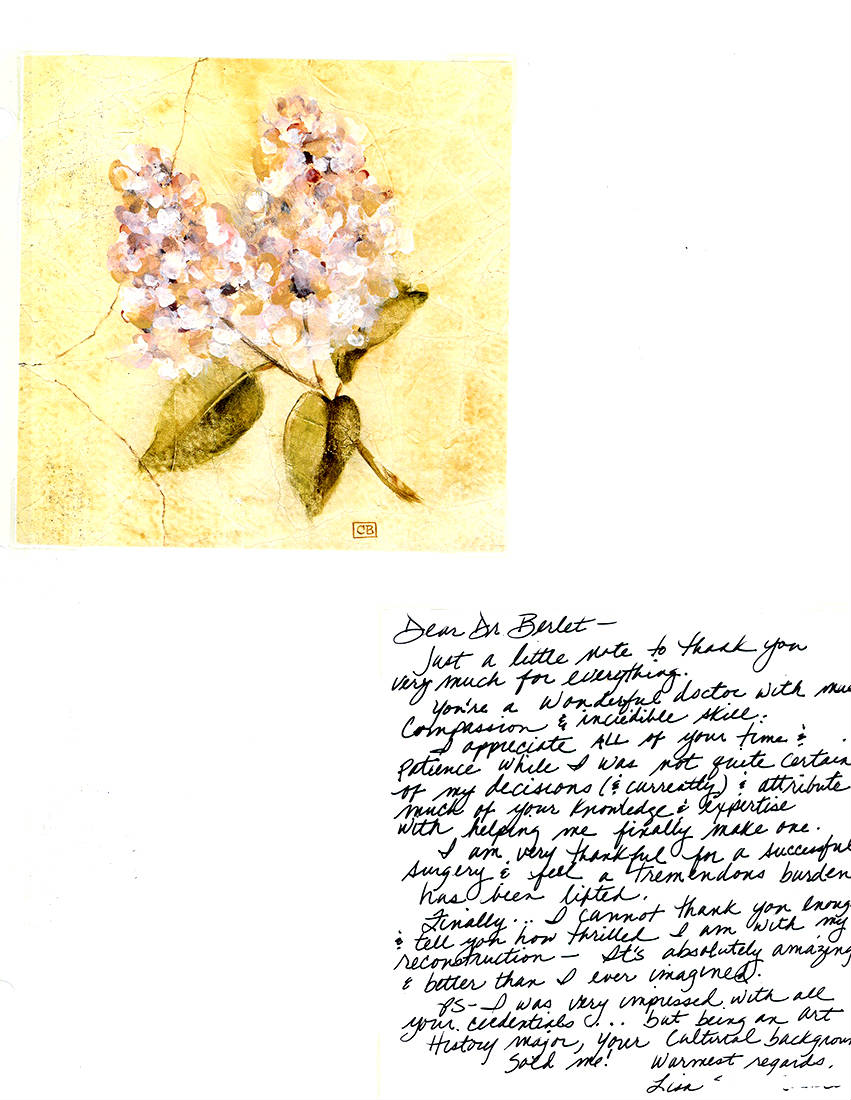 CB
Dear Dr Berlet —
Just a little note to thank you
very much for everything.
You're a wonderful doctor with muc
compassion & incredible skill.
I appreciate ALL of your time &
patience while I was not quite certain
of my decisions (& currently) & attribute
much of your knowledge & expertise
with helping me finally make one.
I am very thankful for a successful
surgery & feel a tremendous burden
has been lifted.
Finally... I cannot thank you enoug
& tell you how thrilled I am with my
reconstruction — It's absolutely amazing
& better than I ever imagined.
PS - I was very impressed with all
your credentials ... but being an Art
History major, your Cultural backgroun
Sold me! Warmest regards,
Lisa